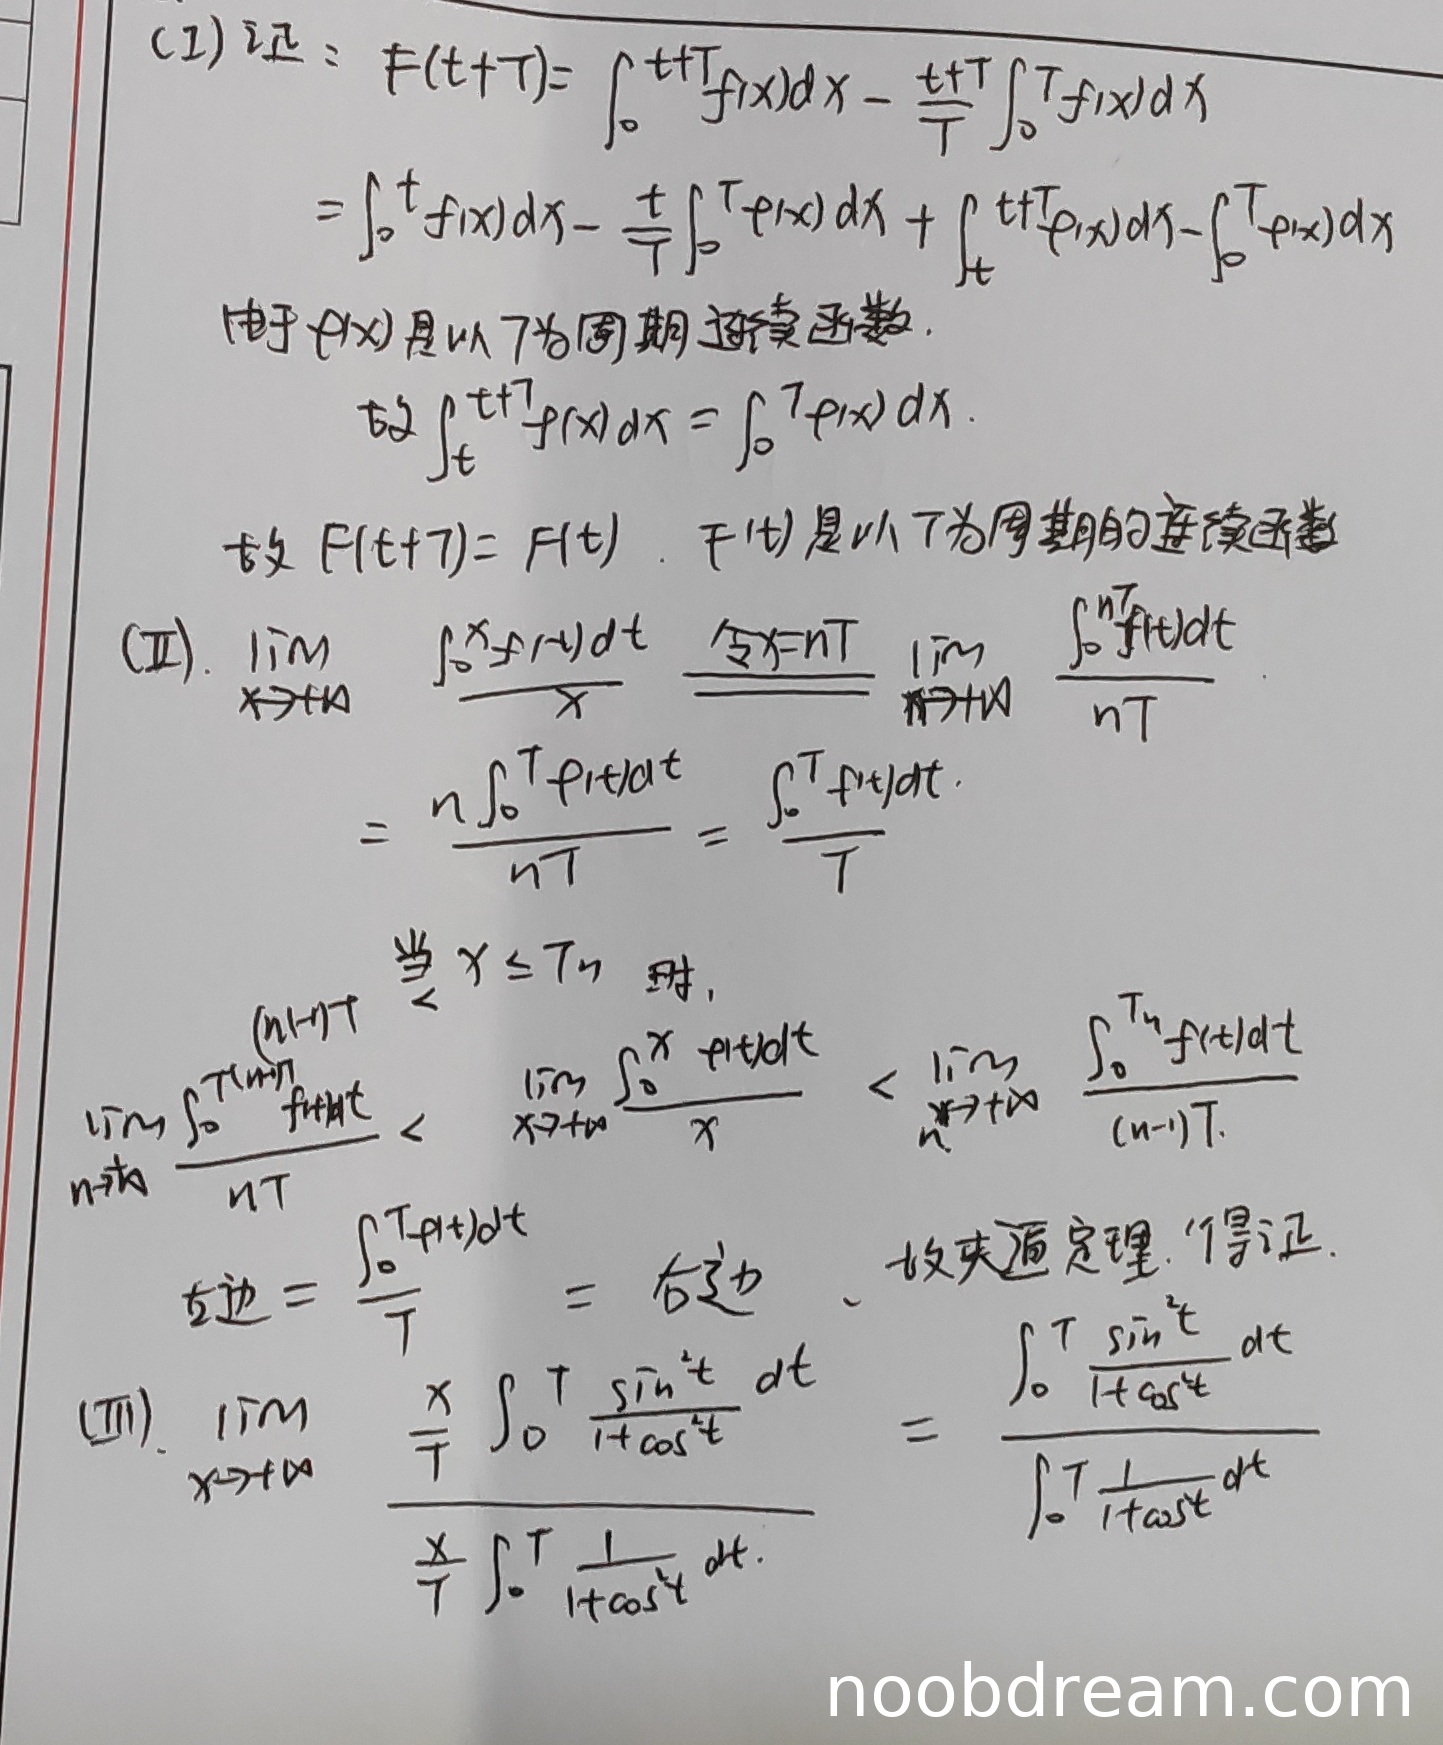 (I) 证: F(t+T)= ∫₀^{t+T} f(x)dx - \frac{t+T}{T} ∫₀^T f(x)dx
= ∫₀^t f(x)dx - \frac{t}{T} ∫₀^T f(x)dx + ∫_t^{t+T} f(x)dx - ∫₀^T f(x)dx
由于 f(x) 是以 T 为周期连续函数.
故 ∫_t^{t+T} f(x)dx = ∫₀^T f(x)dx.
故 F(t+T) = F(t). F(t) 是以 T 为周期的连续函数
(II). \lim_{x→+∞} \frac{∫₀^x f(t)dt}{x} \xlongequal{令x=nT} \lim_{n→+∞} \frac{∫₀^{nT} f(t)dt}{nT}.
= \frac{n∫₀^T f(t)dt}{nT} = \frac{∫₀^T f(t)dt.}{T}
当 (n-1)T < x ≤ Tn 时,
\lim_{n→+∞} \frac{∫₀^{T(n-1)} f(t)dt}{nT} < \lim_{x→+∞} \frac{∫₀^x f(t)dt}{x} < \lim_{n→+∞} \frac{∫₀^{Tn} f(t)dt}{(n-1)T.}
左边 = \frac{∫₀^T f(t)dt}{T} = 右边、故夹逼定理.得证.
(III). \lim_{x→+∞} \frac{\frac{x}{T} ∫₀^T \frac{sin²t}{1+cos²t} dt}{\frac{x}{T} ∫₀^T \frac{1}{1+cos²t} dt.} = \frac{∫₀^T \frac{sin²t}{1+cos²t} dt}{∫₀^T \frac{1}{1+cos²t} dt}
noobdream.com